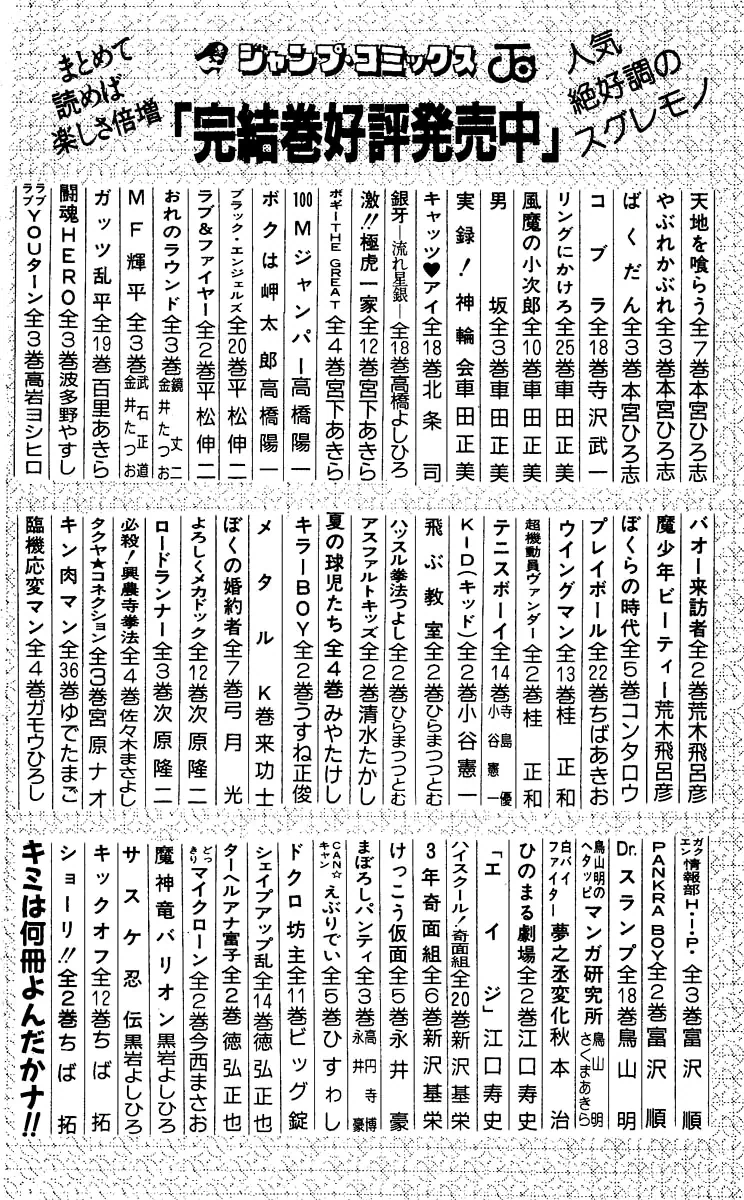 まとめて
読めば
楽しさ倍増
ジャンプ・コミックス
人気
絶好調の
スグレモノ
「完結巻好評発売中」
天地を喰らう 全7巻 本宮ひろ志
やぶれかぶれ 全3巻 本宮ひろ志
ばくだん 全3巻 本宮ひろ志
コブラ 全18巻 寺沢武一
リングにかけろ 全25巻 車田正美
風魔の小次郎 全10巻 車田正美
男坂 全3巻 車田正美
実録!神輪会 車田正美
キャッツ♥アイ 全18巻 北条司
銀牙―流れ星 銀― 全18巻 高橋よしひろ
激!!極虎一家 全12巻 宮下あきら
ボギーTHE GREAT 全4巻 宮下あきら
100Mジャンパー 高橋陽一
ボクは岬太郎 高橋陽一
ブラック・エンジェルズ 全20巻 平松伸二
ラブ&ファイヤー 全2巻 平松伸二
おれのラウンド 全3巻 鏡丈二 金井たつお
MF輝平 全3巻 武石正道 金井たつお
ガッツ乱平 全19巻 百里あきら
闘魂HERO 全3巻 波多野やすし
ラブラブYOUターン 全3巻 高岩ヨシヒロ
バオー来訪者 全2巻 荒木飛呂彦
魔少年ビーティー 荒木飛呂彦
ぼくらの時代 全5巻 コンタロウ
プレイボール 全22巻 ちばあきお
ウイングマン 全13巻 桂正和
超機動員ヴァンダー 全2巻 桂正和
テニスボーイ 全14巻 寺島優 小谷憲一
KID(キッド) 全2巻 小谷憲一
飛ぶ教室 全2巻 ひらまつつとむ
ハッスル拳法つよし 全2巻 ひらまつつとむ
アスファルトキッズ 全2巻 清水たかし
夏の球児たち 全4巻 みやたけし
キラーBOY 全2巻 うすね正俊
メタルK 巻来功士
ぼくの婚約者 全7巻 弓月光
よろしくメカドック 全12巻 次原隆二
ロードランナー 全3巻 次原隆二
必殺!興農寺拳法 全4巻 佐々木まさよし
タクヤ★コネクション 全3巻 宮原ナオ
キン肉マン 全36巻 ゆでたまご
臨機応変マン 全4巻 ガモウひろし
ガクエン情報部H・I・P・ 全3巻 富沢順
PANKRA BOY 全2巻 富沢順
Dr.スランプ 全18巻 鳥山明
鳥山明のヘタッピマンガ研究所 鳥山明 さくまあきら
白バイファイター 夢之丞変化 秋本治
ひのまる劇場 全2巻 江口寿史
「エイジ」 江口寿史
ハイスクール!奇面組 全20巻 新沢基栄
3年奇面組 全6巻 新沢基栄
けっこう仮面 全5巻 永井豪
まぼろしパンティ 全3巻 高円寺博 永井豪
CAN☆キャン えぶりでい 全5巻 ひすわし
ドクロ坊主 全11巻 ビッグ錠
シェイプアップ乱 全14巻 徳弘正也
ターヘルアナ富子 全2巻 徳弘正也
どっきりマイクローン 全2巻 今西まさお
魔神竜バリオン 黒岩よしひろ
サスケ忍伝 黒岩よしひろ
キックオフ 全12巻 ちば拓
ショーリ!! 全2巻 ちば拓
キミは何冊よんだかナ!!